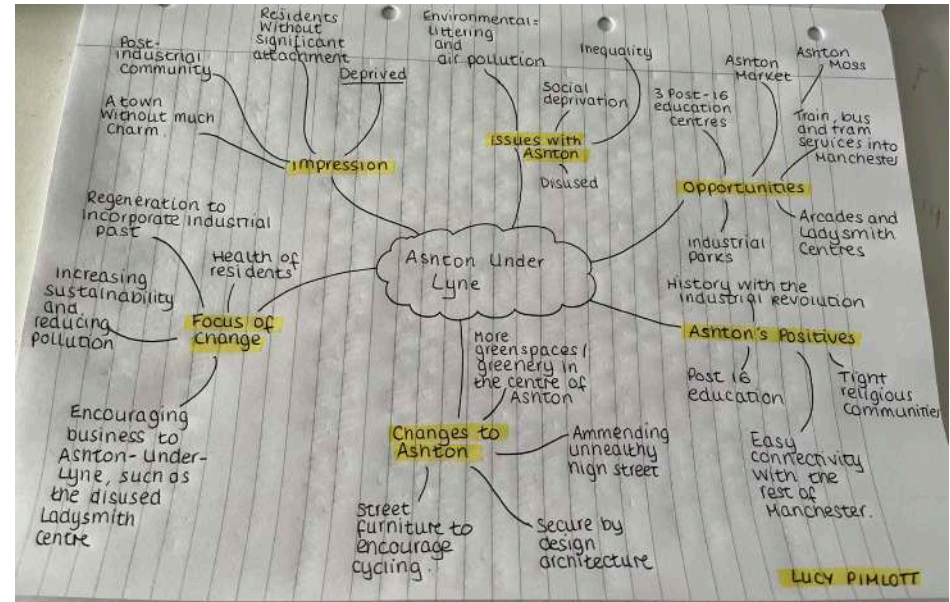 Ashton Under
Lyne
Impression
Post-
industrial
community
A town
without much
charm.
Residents
Without
significant
attachment
Deprived
issues with
Ashton
Environmental=
littering
and
air pollution
Social
deprivation
Inequality
Disused
Opportunities
3 Post-16
education
centres
Ashton
Market
Ashton
Moss
Train, bus
and tram
services into
Manchester
Arcades and
Ladysmith
Centres
industrial
parks
Ashton's Positives
History with the
industrial Revolution
Post 16
education
Easy
connectivity
with the
rest of
Manchester.
Tight
religious
communities
Changes to
Ashton
More
greenspaces/
greenery in
the centre of
Ashton
Ammending
unhealthy
high street
Secure by
design
architecture
Street
furniture to
encourage
cycling.
Focus of
Change
Regeneration to
incorporate industrial
past
Health of
residents
Increasing
sustainability
and
reducing
pollution
Encouraging
business to
Ashton-Under-
Lyne, such as
the disused
Ladysmith
centre
LUCY PIMLOTT